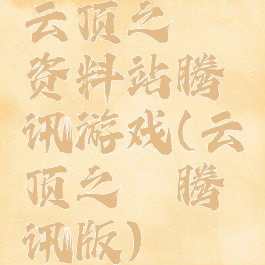 云顶之
资料站腾
讯游戏(云
顶之 腾
讯版)